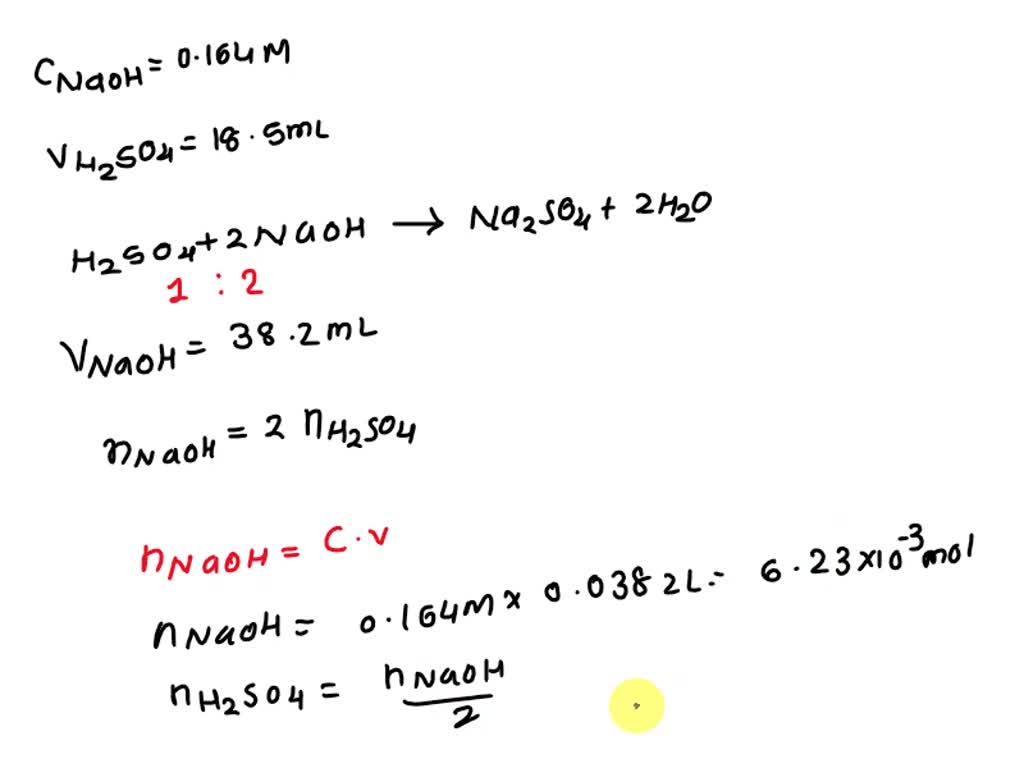 C_NaOH = 0.164M
V_H₂SO₄ = 18.5mL
H₂SO₄ + 2NaOH → Na₂SO₄ + 2H₂O
1 : 2
V_NaOH = 38.2mL
n_NaOH = 2 n_H₂SO₄
n_NaOH = C·V
n_NaOH = 0.164M × 0.0382L = 6.23×10⁻³mol
n_H₂SO₄ = n_NaOH / 2